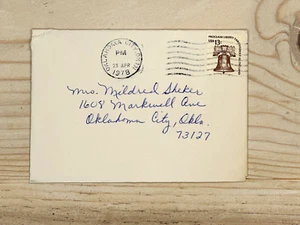 OKLAHOMA CITY, OK
PM
21 APR
1978
13c
Mrs. Mildred Sheker
1609 Markwell Ave
Oklahoma City, Okla.
73127